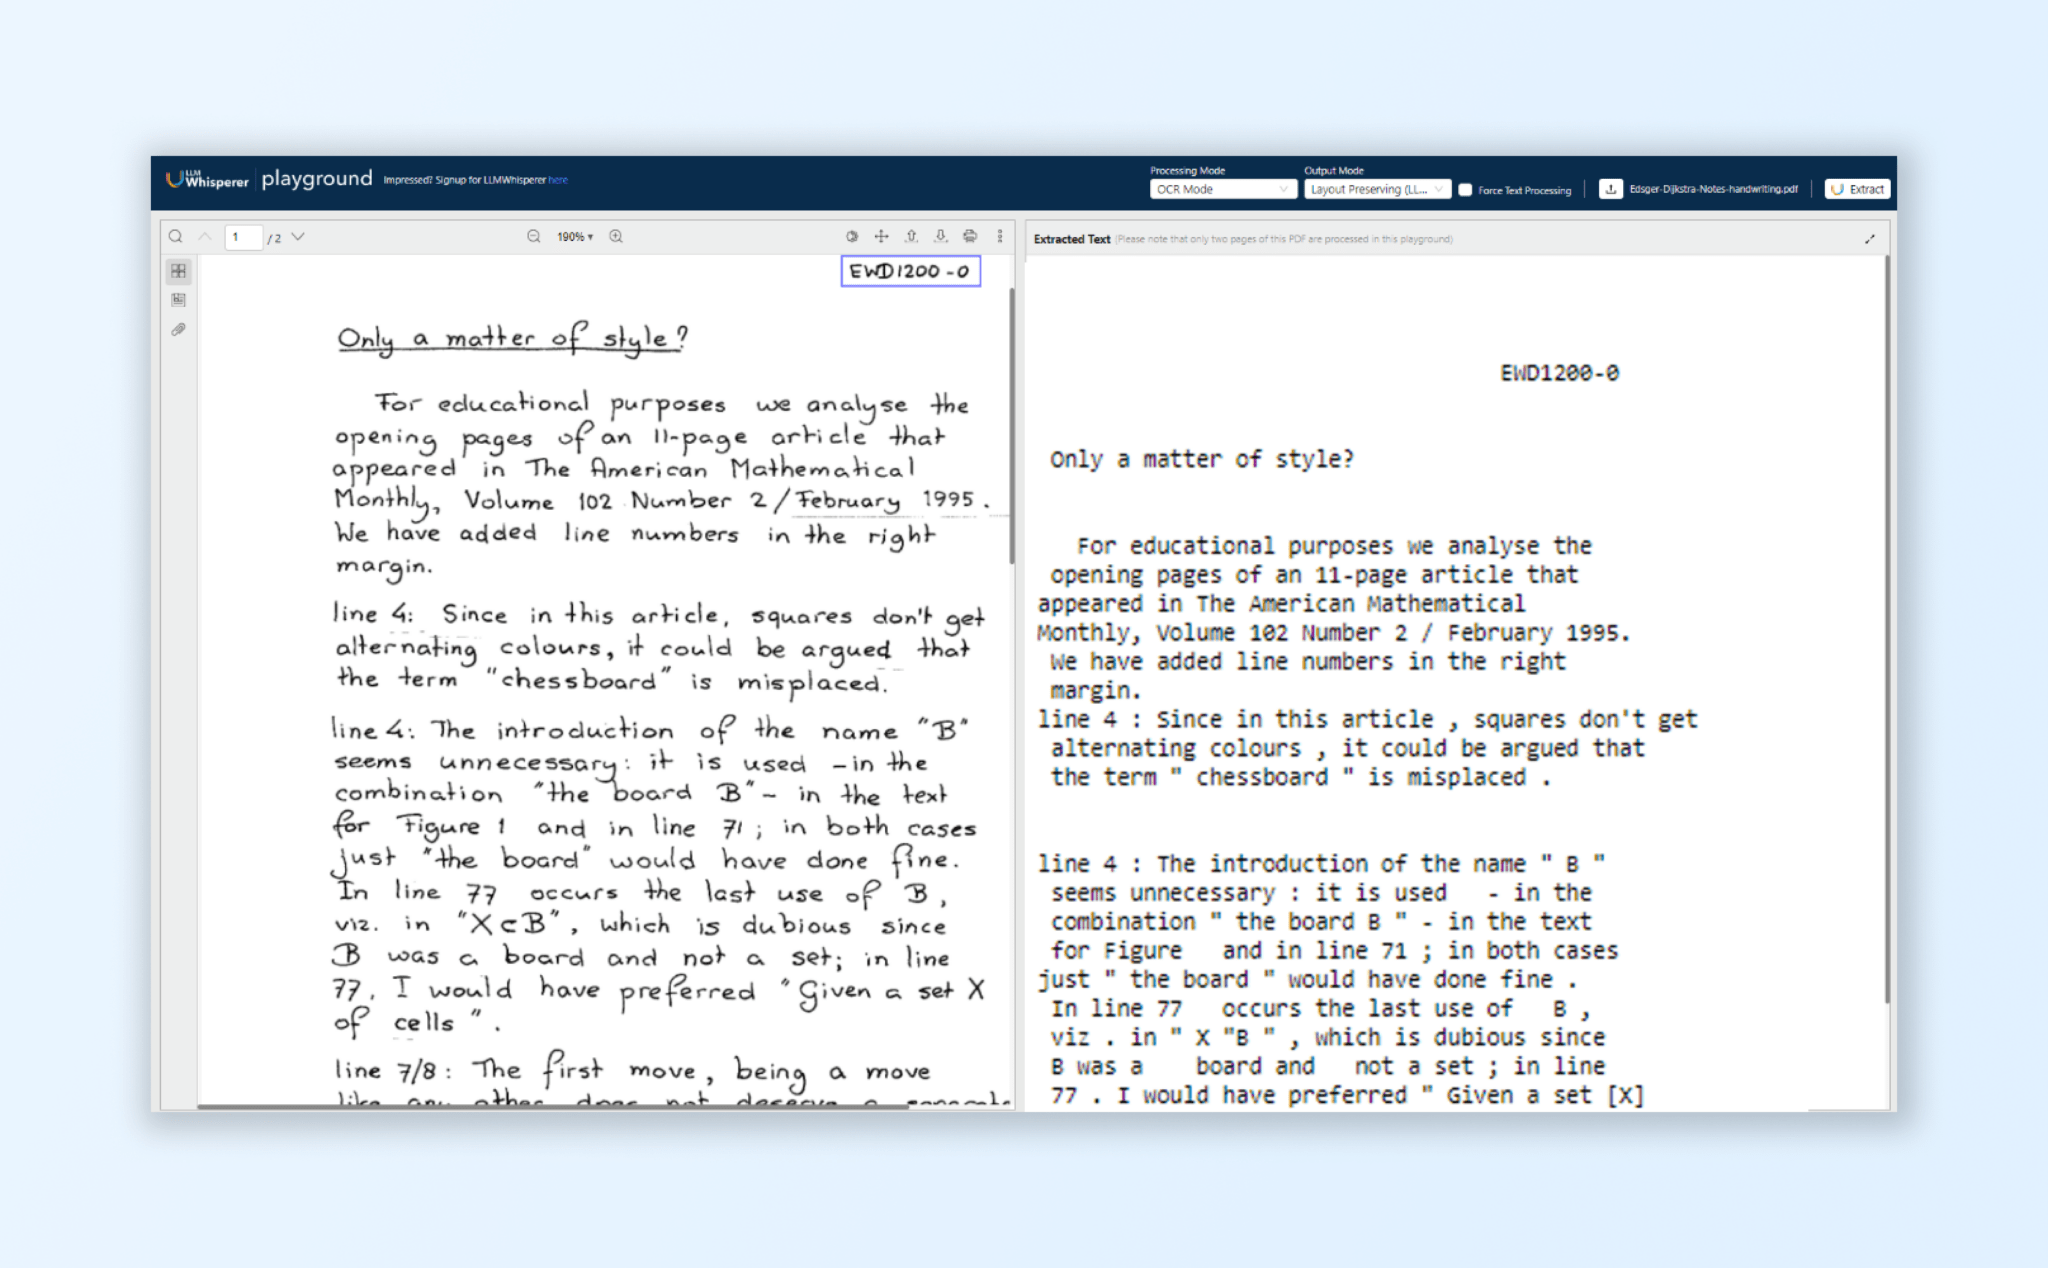 LLM Whisperer playground Impressed? Signup for LLMWhisperer here
Processing Mode
OCR Mode
Output Mode
Layout Preserving (LL...
Force Text Processing
Edsger-Dijkstra-Notes-handwriting.pdf
Extract
1 /2
190%
EWD1200-0
Only a matter of style?
For educational purposes we analyse the
opening pages of an 11-page article that
appeared in The American Mathematical
Monthly, Volume 102 Number 2/February 1995.
We have added line numbers in the right
margin.
line 4: Since in this article, squares don't get
alternating colours, it could be argued that
the term "chessboard" is misplaced.
line 4: The introduction of the name "B"
seems unnecessary: it is used -in the
combination "the board B"- in the text
for Figure 1 and in line 71; in both cases
just "the board" would have done fine.
In line 77 occurs the last use of B,
viz. in "X⊂B", which is dubious since
B was a board and not a set; in line
77, I would have preferred "Given a set X
of cells".
line 7/8: The first move, being a move
like any other does not deserve a separate
Extracted Text (Please note that only two pages of this PDF are processed in this playground)
EWD1200-0
Only a matter of style?
For educational purposes we analyse the
opening pages of an 11-page article that
appeared in The American Mathematical
Monthly, Volume 102 Number 2 / February 1995.
We have added line numbers in the right
margin.
line 4 : Since in this article , squares don't get
alternating colours , it could be argued that
the term " chessboard " is misplaced .
line 4 : The introduction of the name " B "
seems unnecessary : it is used - in the
combination " the board B " - in the text
for Figure and in line 71 ; in both cases
just " the board " would have done fine .
In line 77 occurs the last use of B ,
viz . in " X "B " , which is dubious since
B was a board and not a set ; in line
77 . I would have preferred " Given a set [X]